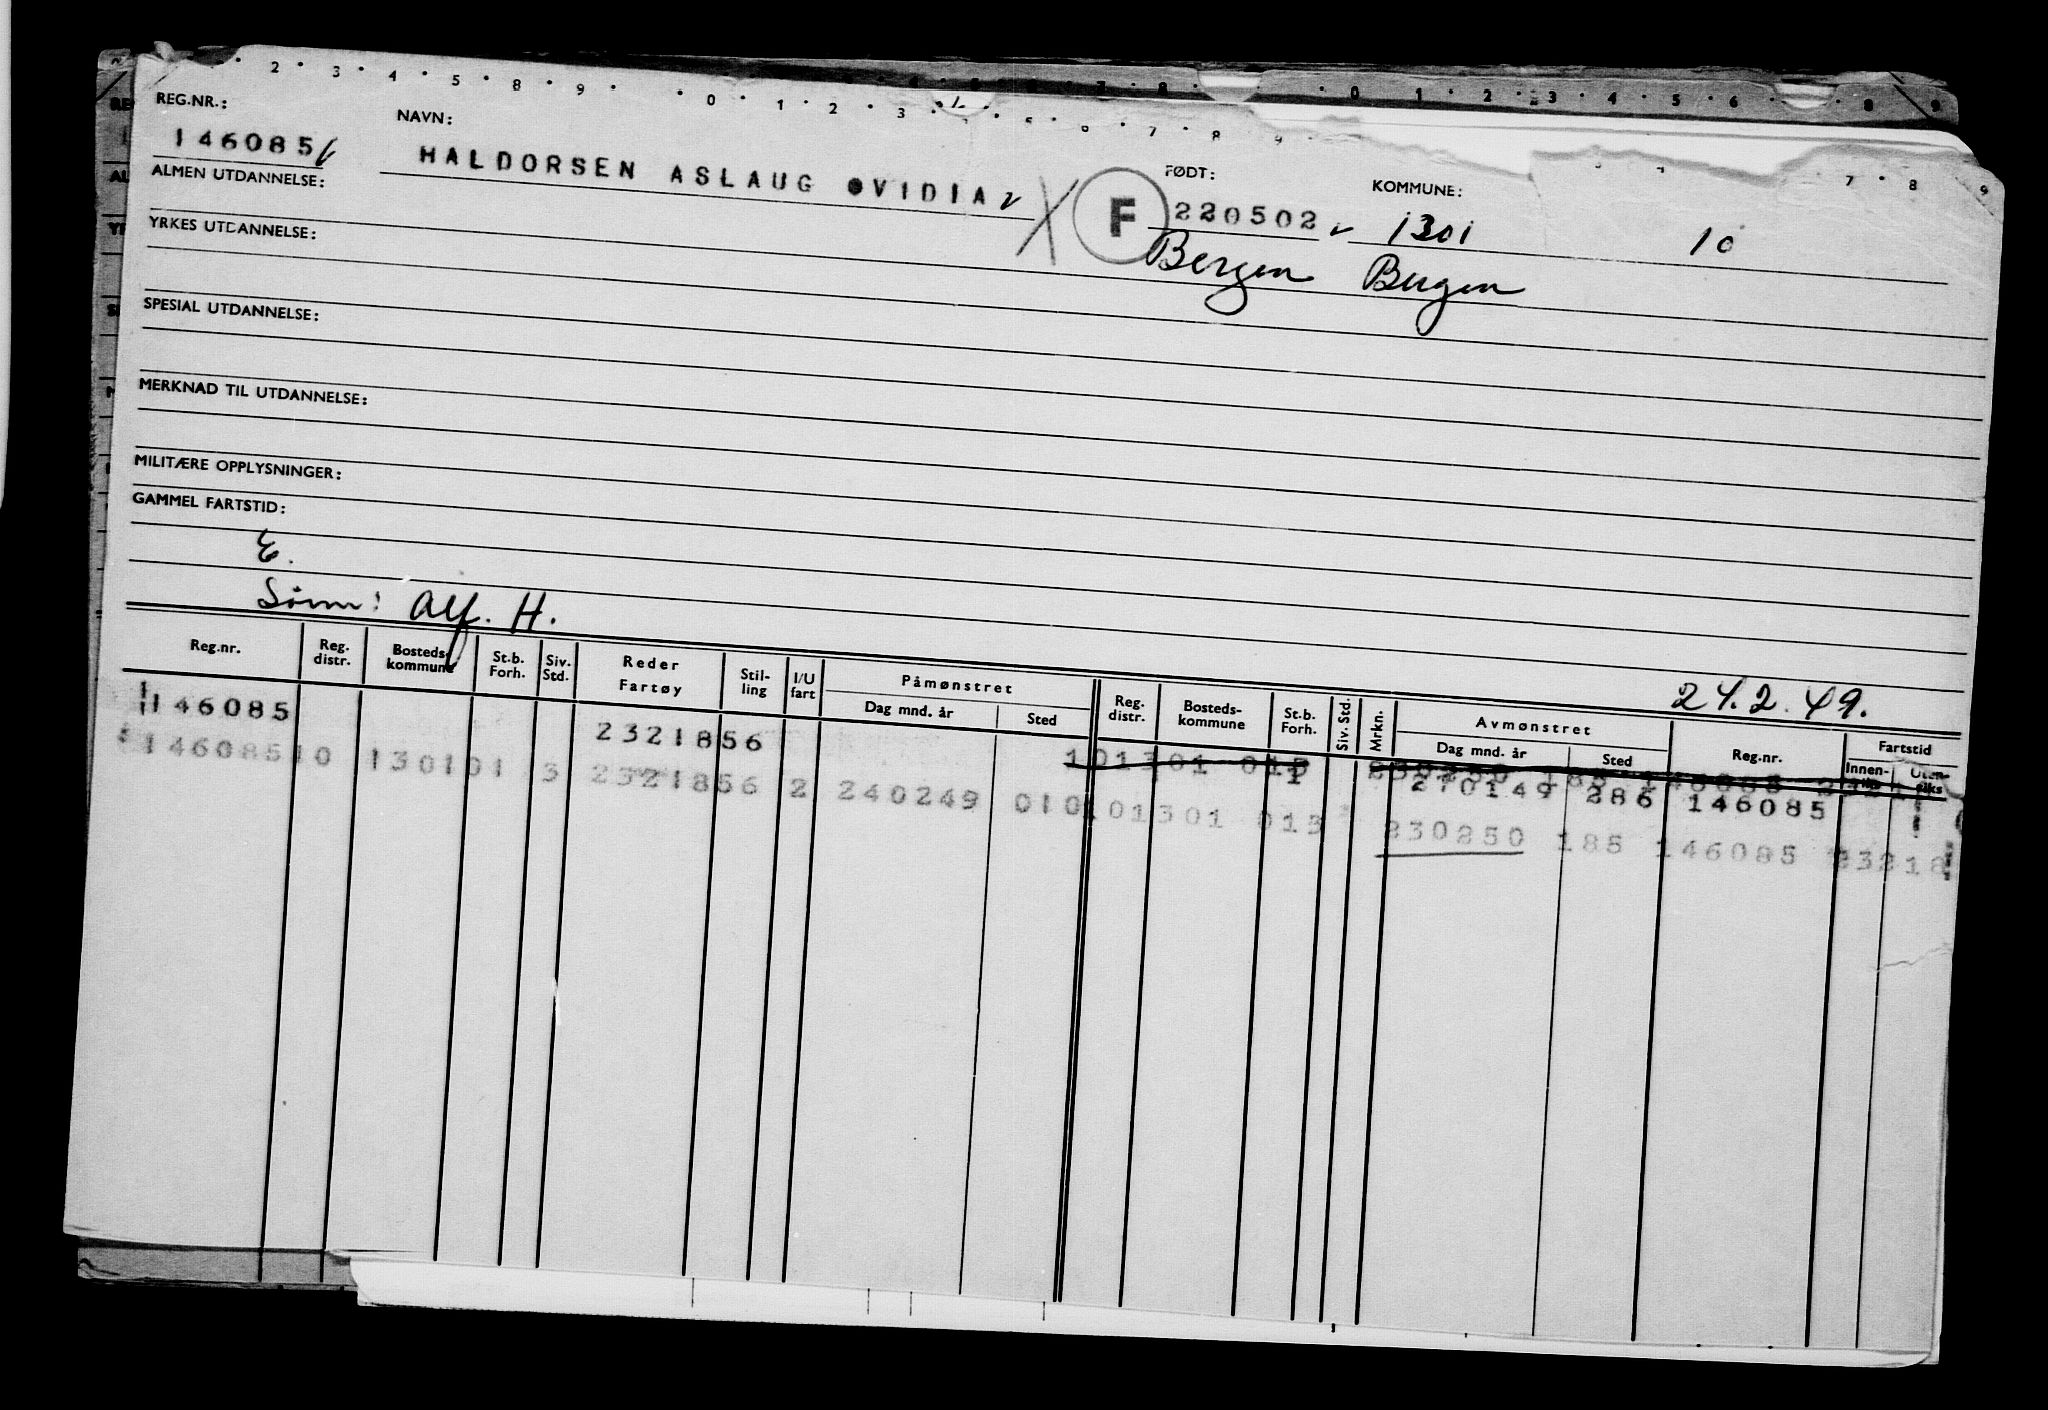 2 · 3 · 4 · 5 · 8 · 9 · · 0 · 1 · 2 · 3 · 7 · 8
0 · 1 · 2 · 3 · 4 · 5 · 6 · 8 · 9
7 · 8 · 9
REG.NR.: NAVN: FØDT: KOMMUNE:
146085 HALDORSEN ASLAUG OVIDIA F 220502 1301 10
ALMEN UTDANNELSE:
Bergen Bergen
YRKES UTDANNELSE:
SPESIAL UTDANNELSE:
MERKNAD TIL UTDANNELSE:
MILITÆRE OPPLYSNINGER:
GAMMEL FARTSTID:
E.
Sønn: Alf. H.
24.2.49.
Reg.nr. Reg. distr. Bosteds- kommune St.b. Forh. Siv. Std. Reder Fartøy Stil- ling I/U fart Påmønstret Dag mnd. år Sted Reg. distr. Bosteds- kommune St.b. Forh. Siv. Std. Mrkn. Avmønstret Dag mnd. år Sted Reg.nr. Fartstid Innen- Uten-
146085 2321856 270149 286 146085
146085 10 1301 01 3 2321856 2 240249 010 10 1301 013 230250 185 146085